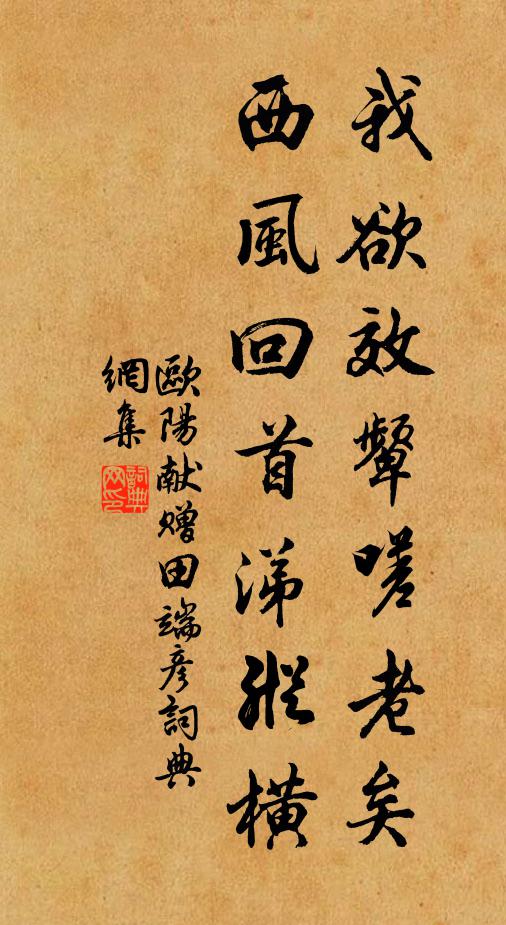 我欲效顰嗟老矣
西風回首涕縱橫
歐陽献贈田端彥詞典
網集
詞典
网印